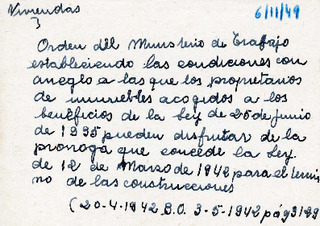 Viviendas
6/11/49
Orden del Ministerio de Trabajo
estableciendo las condiciones con
aneglo a las que los propietarios
de inmuebles acogidos a los
beneficios de la Ley de 25 de junio
de 1935 pueden disfrutar de la
prorroga que concede la Ley.
de 12 de Marzo de 1942 para el termi
no de las construcciones
(20-4-1942 B.O. 3-5-1942 pág 3129